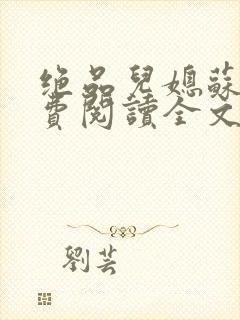 绝品兒媳蘇
費閱讀全文
劉芸